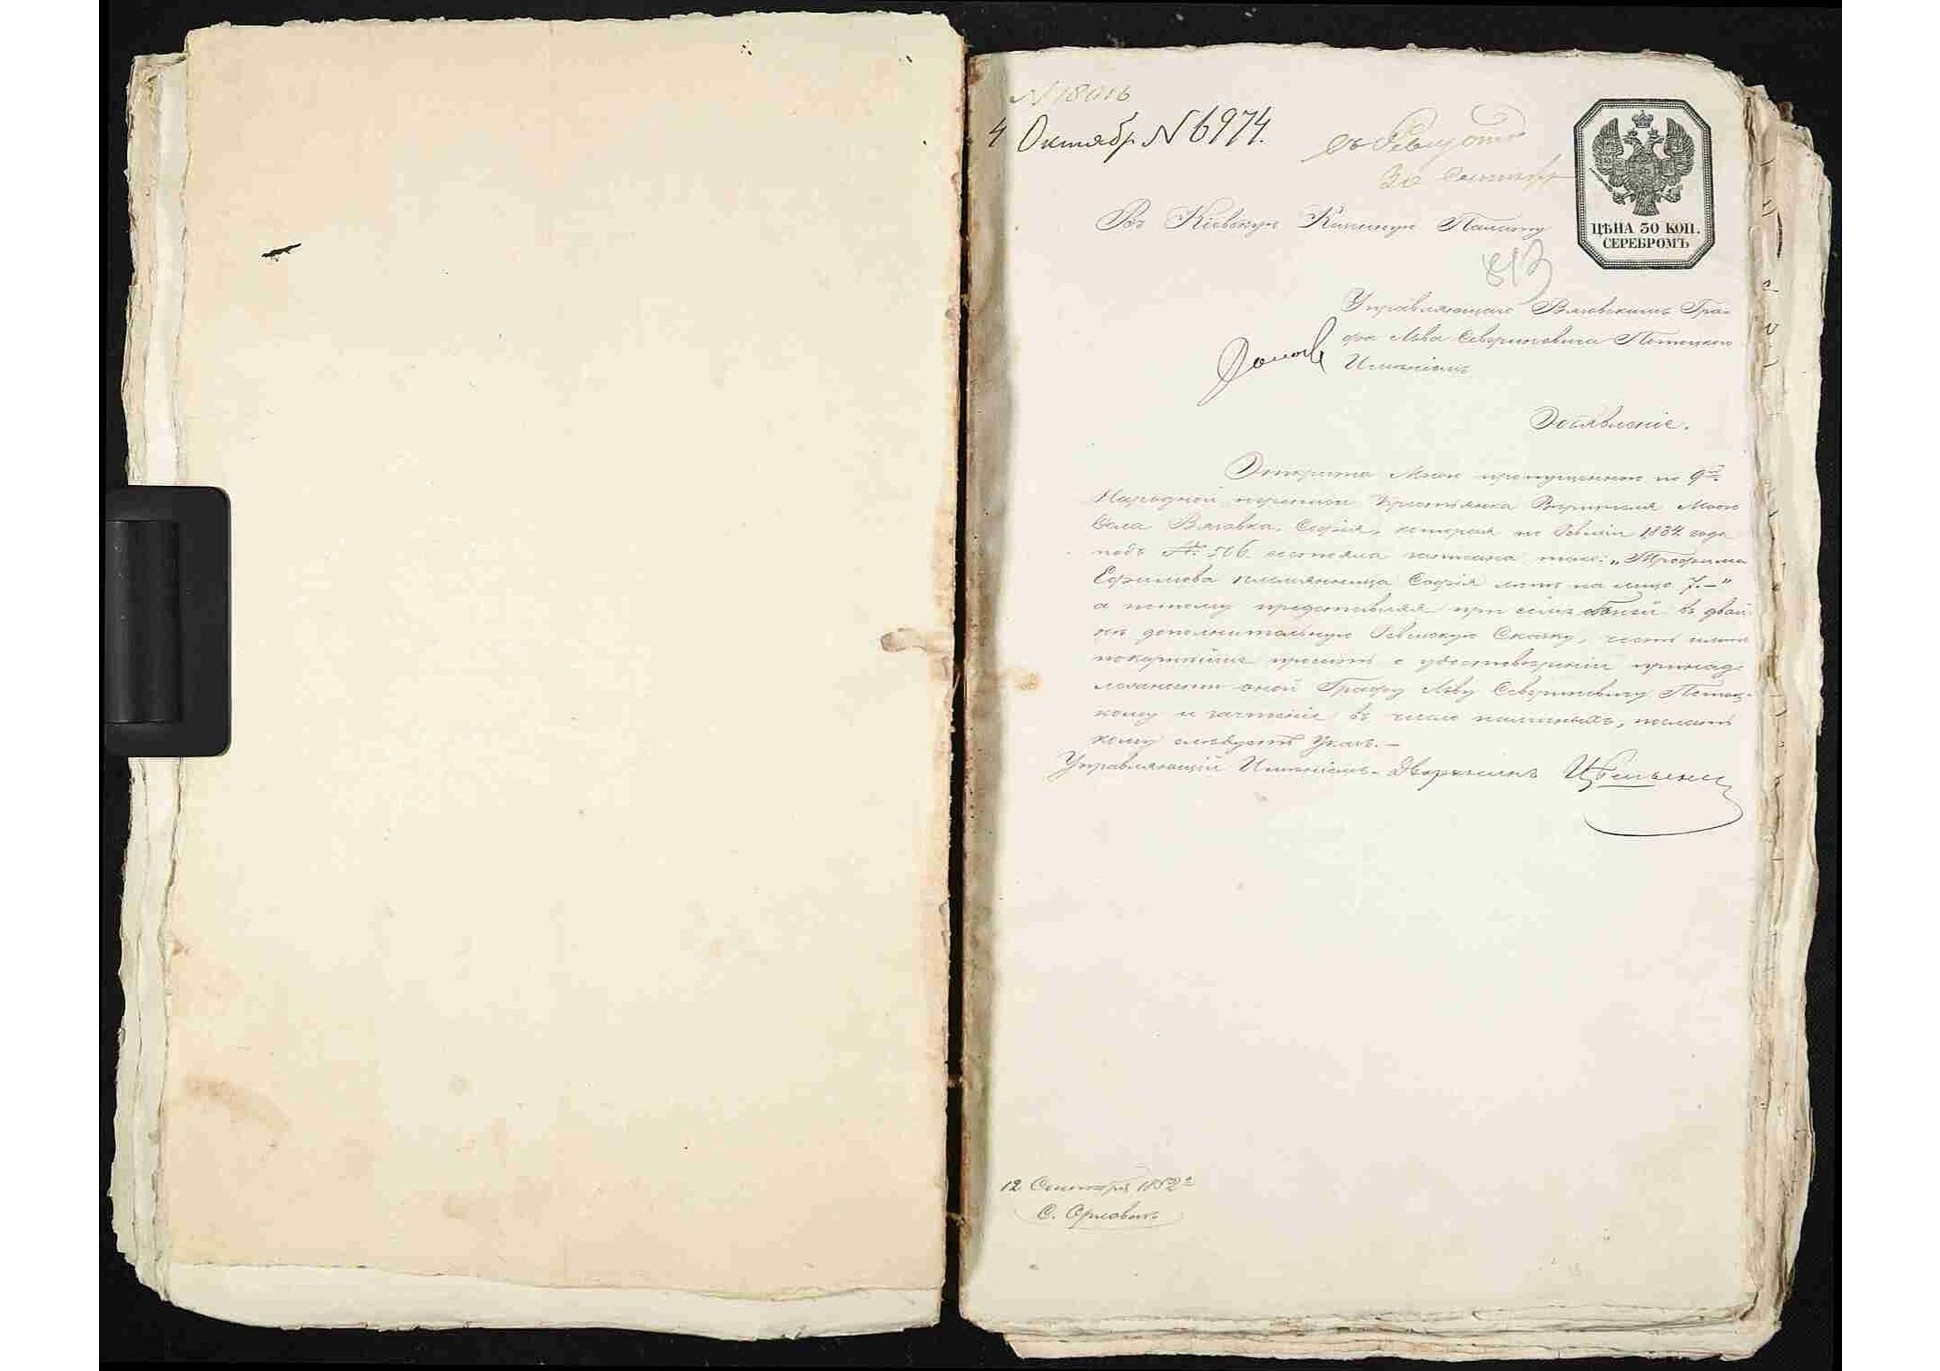 N 18016
4 Октябр N 6974.
30 Сентябр
ЦѢНА 30 КОП.
СЕРЕБРОМЪ
Въ Кіевскую Казенную Палату
813
Управляющаго Вязовскимъ Гра-
фа Льва Севериновича Потоцкого
Имѣніемъ
Объявленіе.
Открыта Мною пропущенною по 9й
Народной переписи Крестьянка Вѣрителя Моего
Села Вязовка, Софія, которая по Ревизіи 1834 года
подъ № 506 состояла записана такъ: „Трофима
Ефимова племянница Софія лѣтъ на лицо 7.—"
а потому представляя при семъ объ ней въ двой-
нѣ дополнительную Ревизскую Сказку, честь имѣю
покорнѣйше просить о удостовѣреніи принад-
лежности оной Графу Льву Севериновичу Потоц-
кому и зачтеніе въ число наличныхъ, послать
кому слѣдуетъ Указъ.—
Управляющій Имѣніемъ Дворянинъ
12 Сентября 1852 г
С. Орловецъ